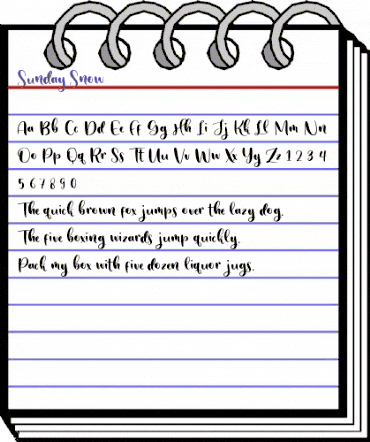 Sunday Snow
Aa Bb Cc Dd Ee Ff Gg Hh Ii Jj Kk Ll Mm Nn
Oo Pp Qq Rr Ss Tt Uu Vv Ww Xx Yy Zz 1 2 3 4
5 6 7 8 9 0
The quick brown fox jumps over the lazy dog.
The five boxing wizards jump quickly.
Pack my box with five dozen liquor jugs.